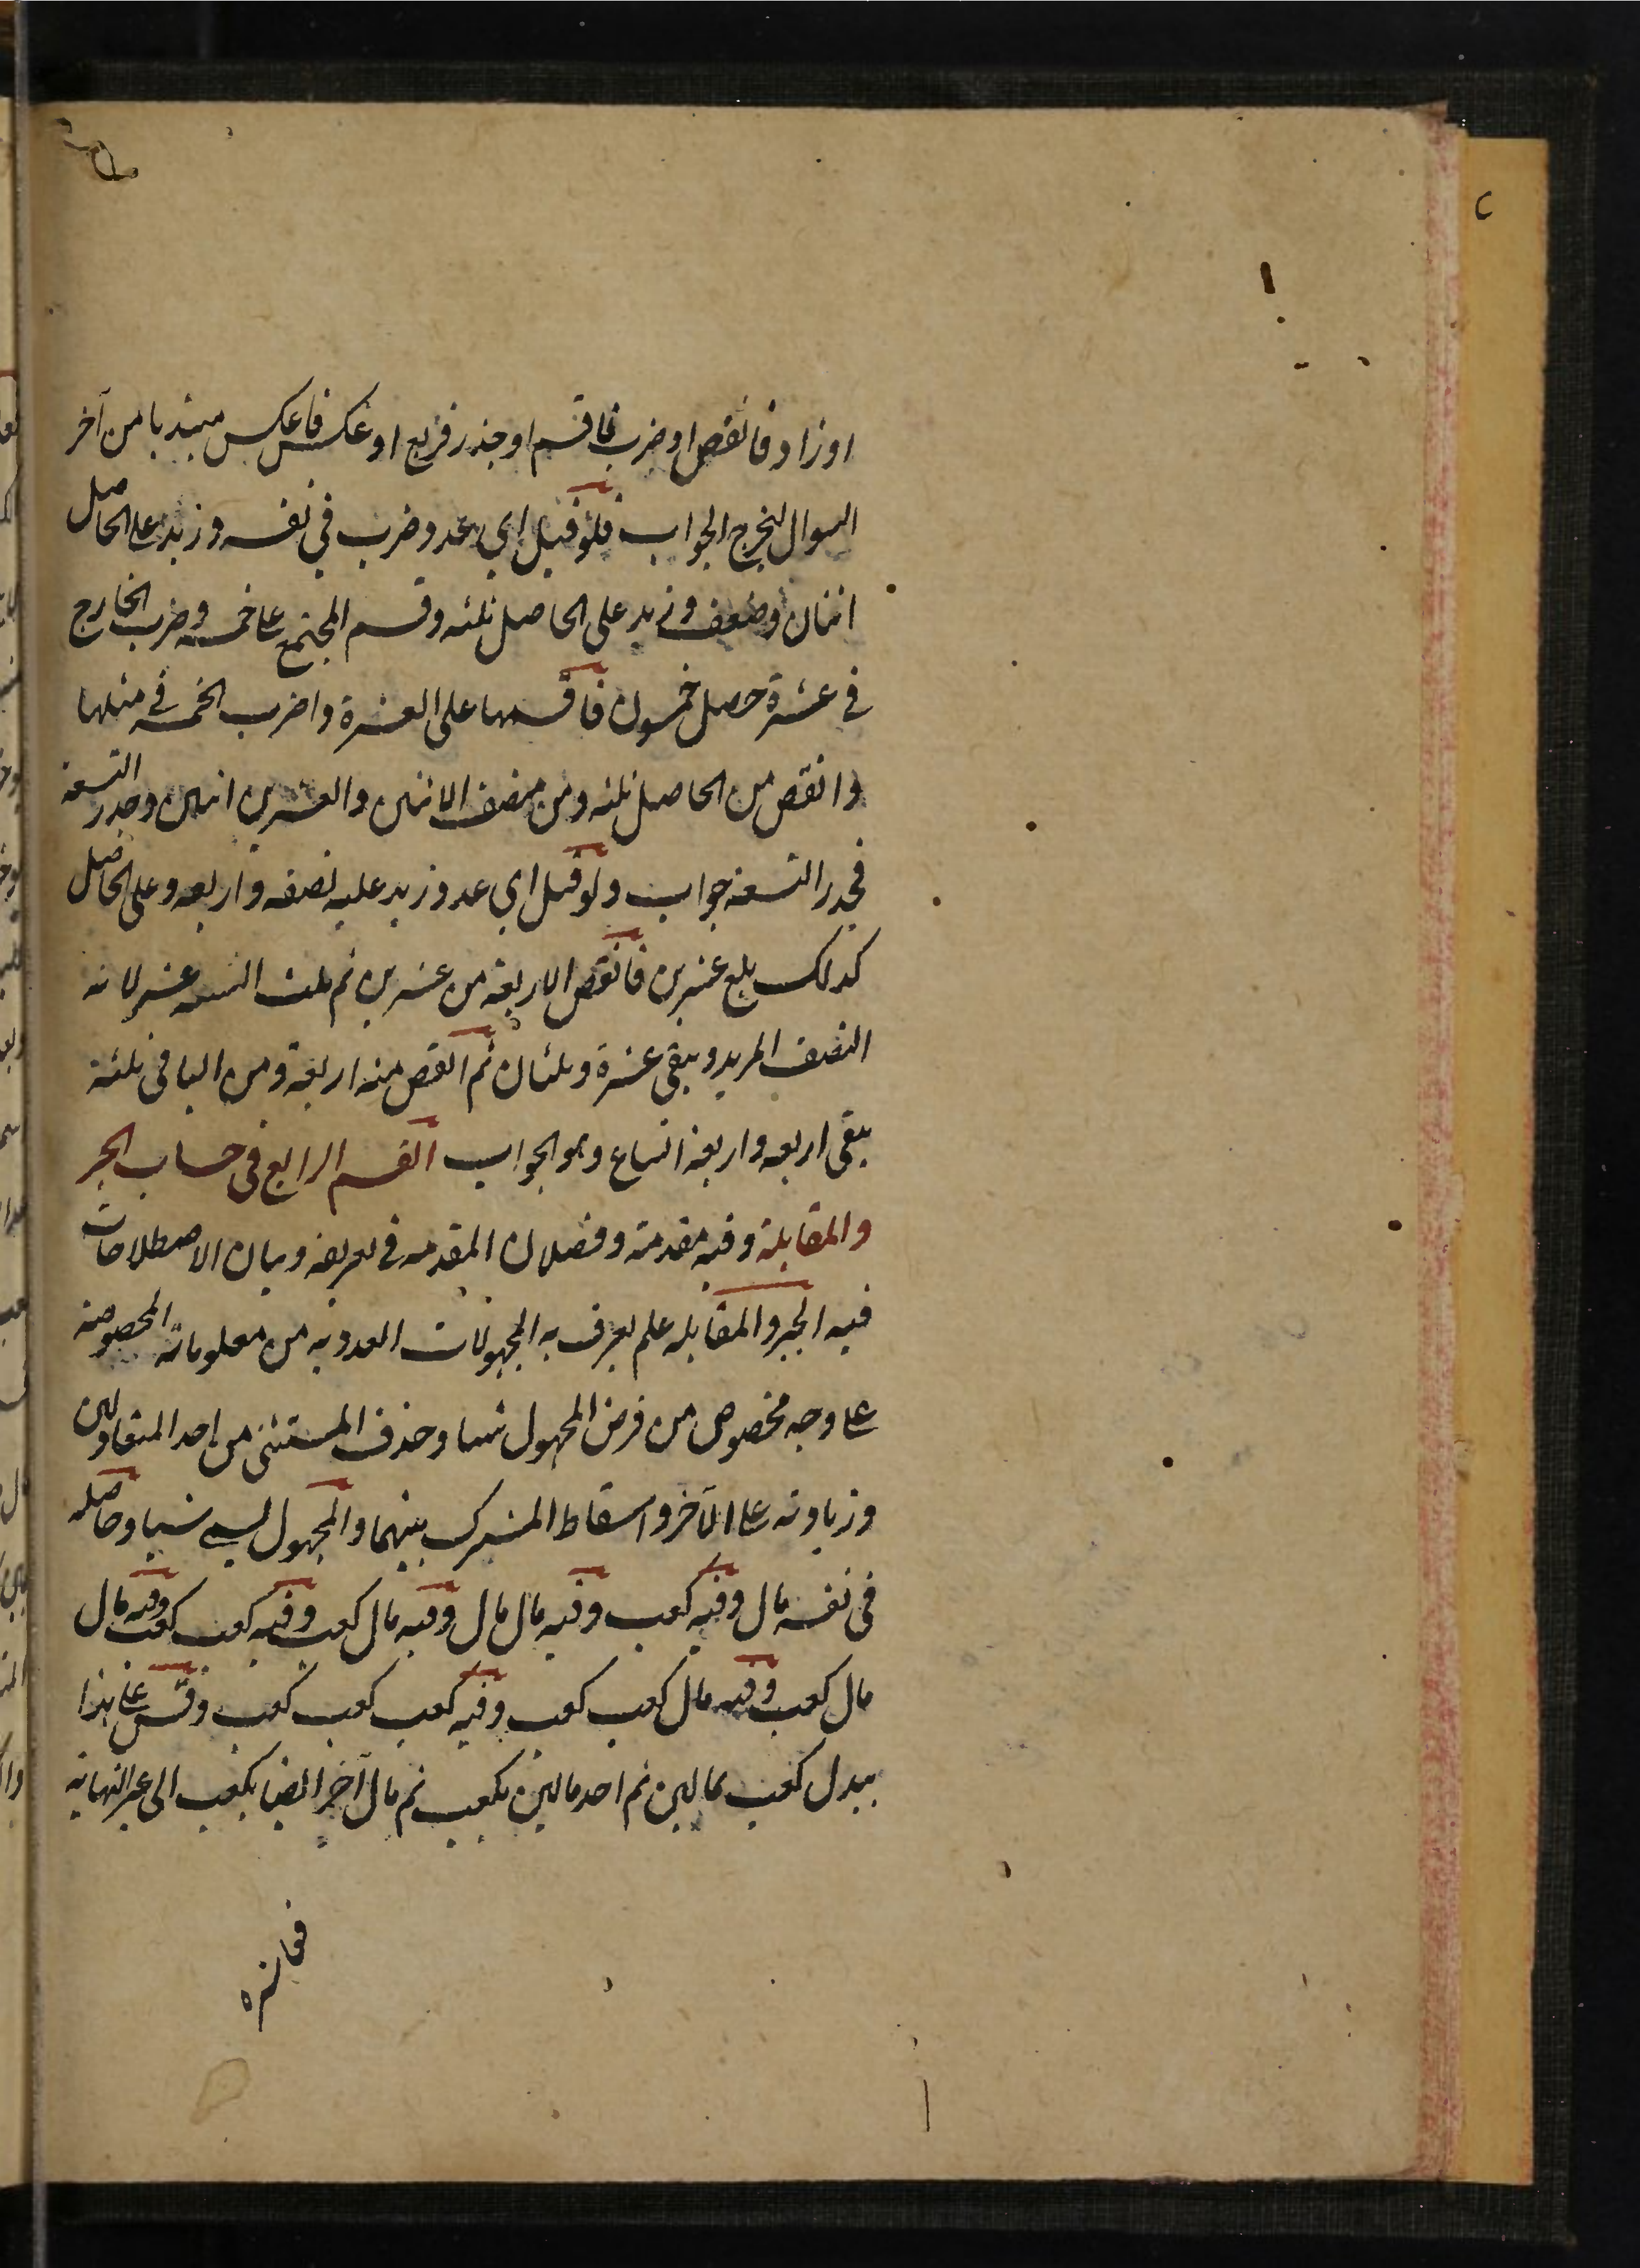 او زاد فانقص او ضرب فاقسم او جذر فربع او عكس فاعكس مبتديا من آخر
السوال ليخرج الجواب فلو قيل اي عدد ضرب في نفسه وزيد على الحاصل
اثنان وضعف وزيد على الحاصل ثلثه وقسم المجتمع على خمسة وضرب الخارج
في عشرة حصل خمسون فاقسمها على العشرة واضرب الخمسة في مثلها
وانقص من الحاصل ثلثه ومن منصف الاثنين والعشرين اثنين وجذر التسعة
فجدر التسعة جواب ولو قيل اي عدد زيد عليه نصفه واربعه وعلى الحاصل
كذلك بلغ عشرين فانقص الاربعة من عشرين ثم ثلث الستة عشر لانه
النصف المزيد ويبقى عشرة وثلثان ثم انقص منه اربعة ومن الباقي ثلثه
يبقى اربعه واربعة اتساع وهو الجواب القسم الرابع في حساب الجبر
والمقابلة وفيه مقدمة وفصلان المقدمه في تعريفه وبيان الاصطلاحات
فيه الجبر والمقابله علم يعرف به المجهولات العدديه من معلوماته المخصوصة
على وجه مخصوص من فرض المجهول شيئا وحذف المستثنى من احد المتعادلين
وزيادته على الآخر واسقاط المشترك بينهما والمجهول يسمى شيئا وحاصله
في نفسه مال وفيه كعب وفيه مال مال وفيه مال كعب وفيه كعب كعب وفيه مال
مال كعب وفيه مال كعب كعب وفيه كعب كعب كعب وقس على هذا
يبدل كعب بمالين ثم احد مالين بكعب ثم مال آخر ايضا بكعب الى غير النهاية